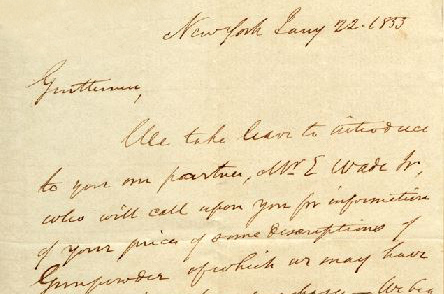 New York Jany 22. 1833
Gentlemen,
We take leave to introduce
to you our partner, Mr E Wade Jr,
who will call upon you for information
of your prices of some descriptions of
Gunpowder of which we may have
We beg